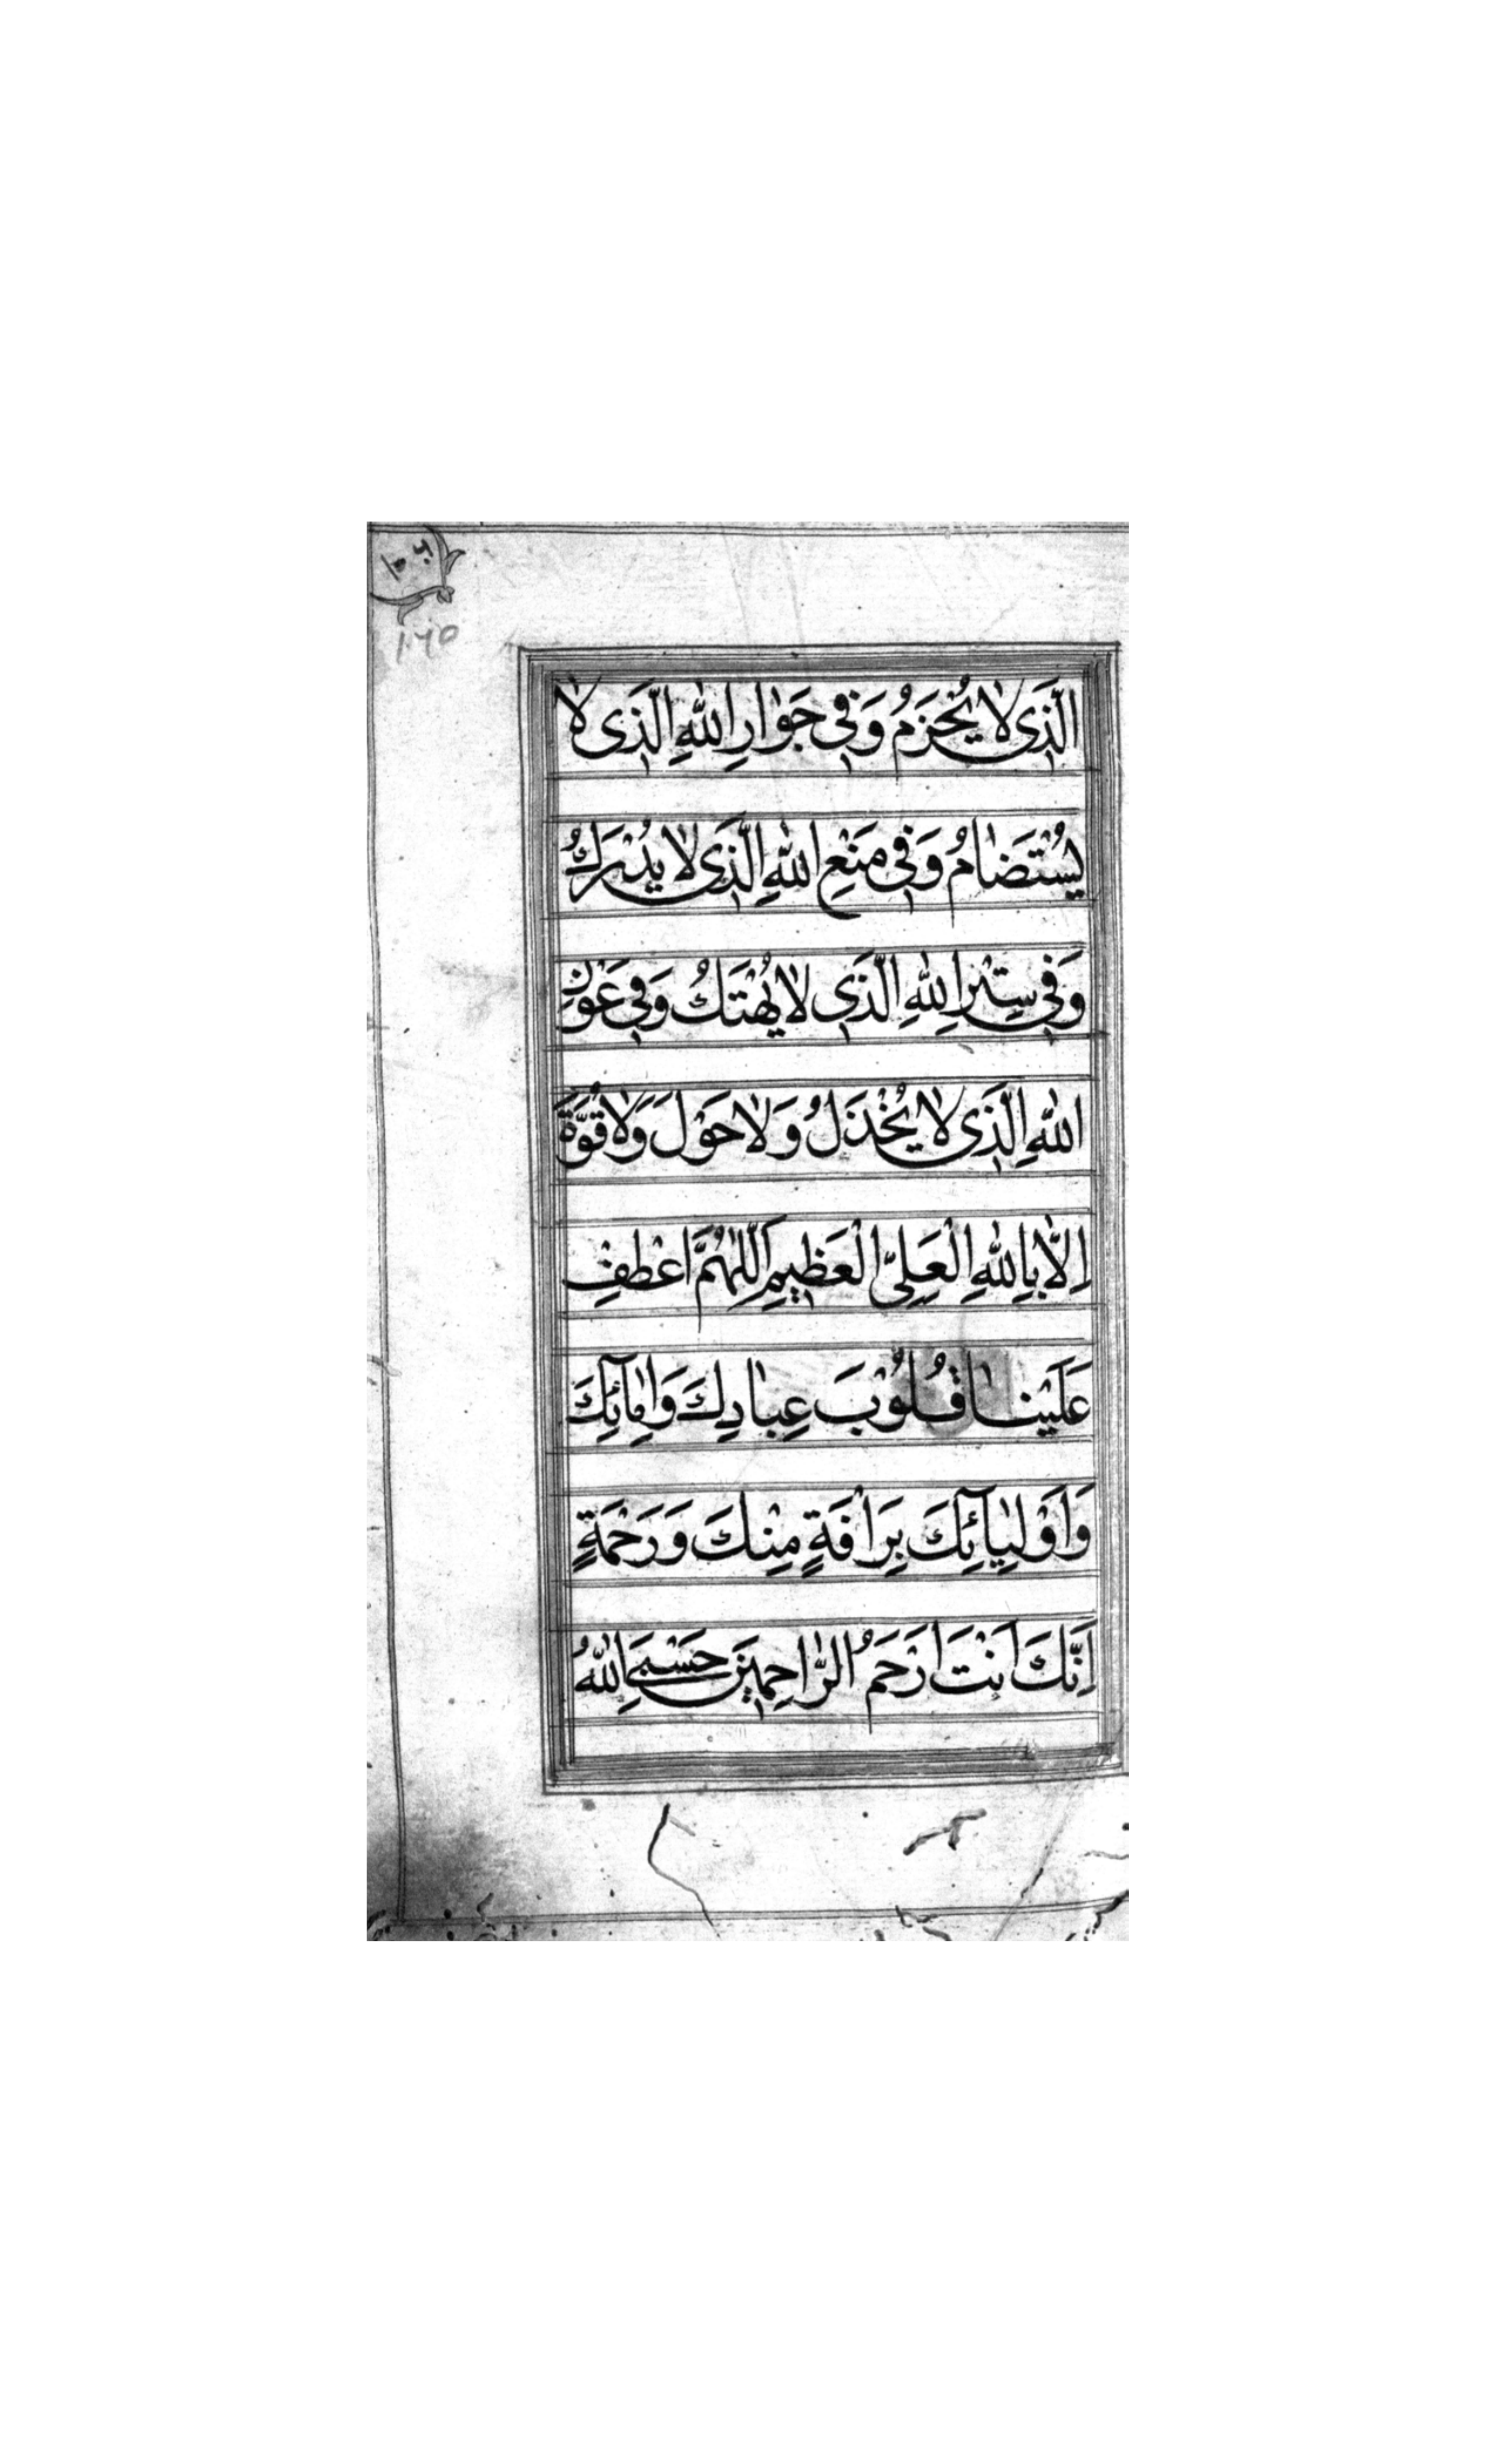 ١٠٦٥
الَّذِى لَا يُخْزَمُ وَفِى جَوَارِ اللهِ الَّذِى لَا
يُسْتَضَامُ وَفِى مَنْعِ اللهِ الَّذِى لَا يُدْرَكُ
وَفِى سِتْرِ اللهِ الَّذِى لَا يُهْتَكُ وَفِى عَوْنِ
اللهِ الَّذِى لَا يُخْذَلُ وَلَا حَوْلَ وَلَا قُوَّةَ
اِلَّا بِاللهِ الْعَلِىِّ الْعَظِيمِ اَللّٰهُمَّ اعْطِفْ
عَلَيْنَا قُلُوْبَ عِبَادِكَ وَاِمَآئِكَ
وَاَوْلِيَآئِكَ بِرَاْفَةٍ مِنْكَ وَرَحْمَةٍ
اِنَّكَ اَنْتَ اَرْحَمُ الرَّاحِمِيْنَ حَسْبِىَ اللهُ